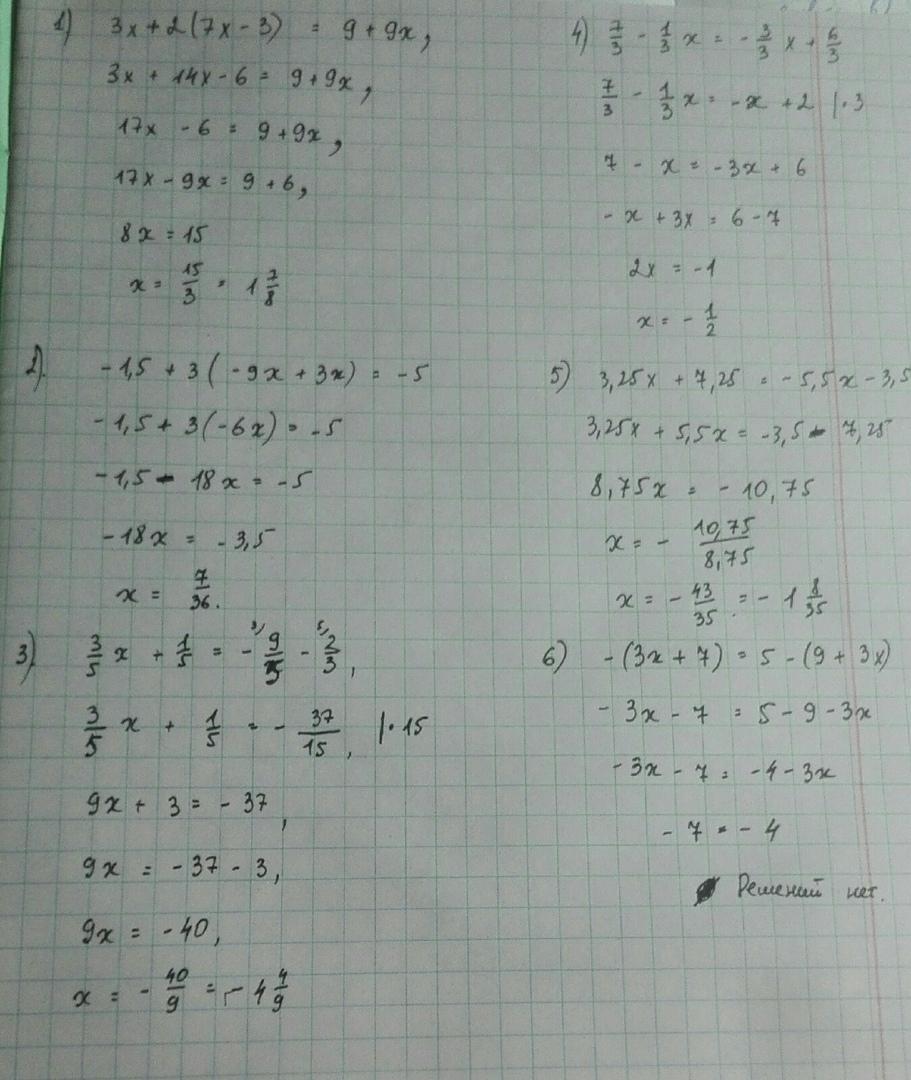 1) 3x + 2(7x - 3) = 9 + 9x,
3x + 14x - 6 = 9 + 9x,
17x - 6 = 9 + 9x,
17x - 9x = 9 + 6,
8x = 15
x = 15/3 = 1 7/8
2). -1,5 + 3(-9x + 3x) = -5
-1,5 + 3(-6x) = -5
-1,5 - 18x = -5
-18x = -3,5
x = 7/36.
3) 3/5 x + 1/5 = - 3) 9/5 - 5) 2/3,
3/5 x + 1/5 = - 37/15, |·15
9x + 3 = -37,
9x = -37 - 3,
9x = -40,
x = - 40/9 = -4 4/9
4) 7/3 - 1/3 x = - 3/3 x + 6/3
7/3 - 1/3 x = -x + 2 |·3
7 - x = -3x + 6
- x + 3x = 6 - 7
2x = -1
x = - 1/2
5) 3,25x + 7,25 = -5,5x - 3,5
3,25x + 5,5x = -3,5 - 7,25
8,75x = -10,75
x = - 10,75/8,75
x = - 43/35 = -1 8/35
6) -(3x + 7) = 5 - (9 + 3x)
- 3x - 7 = 5 - 9 - 3x
-3x - 7 = -4 - 3x
-7 = -4
Решений нет.